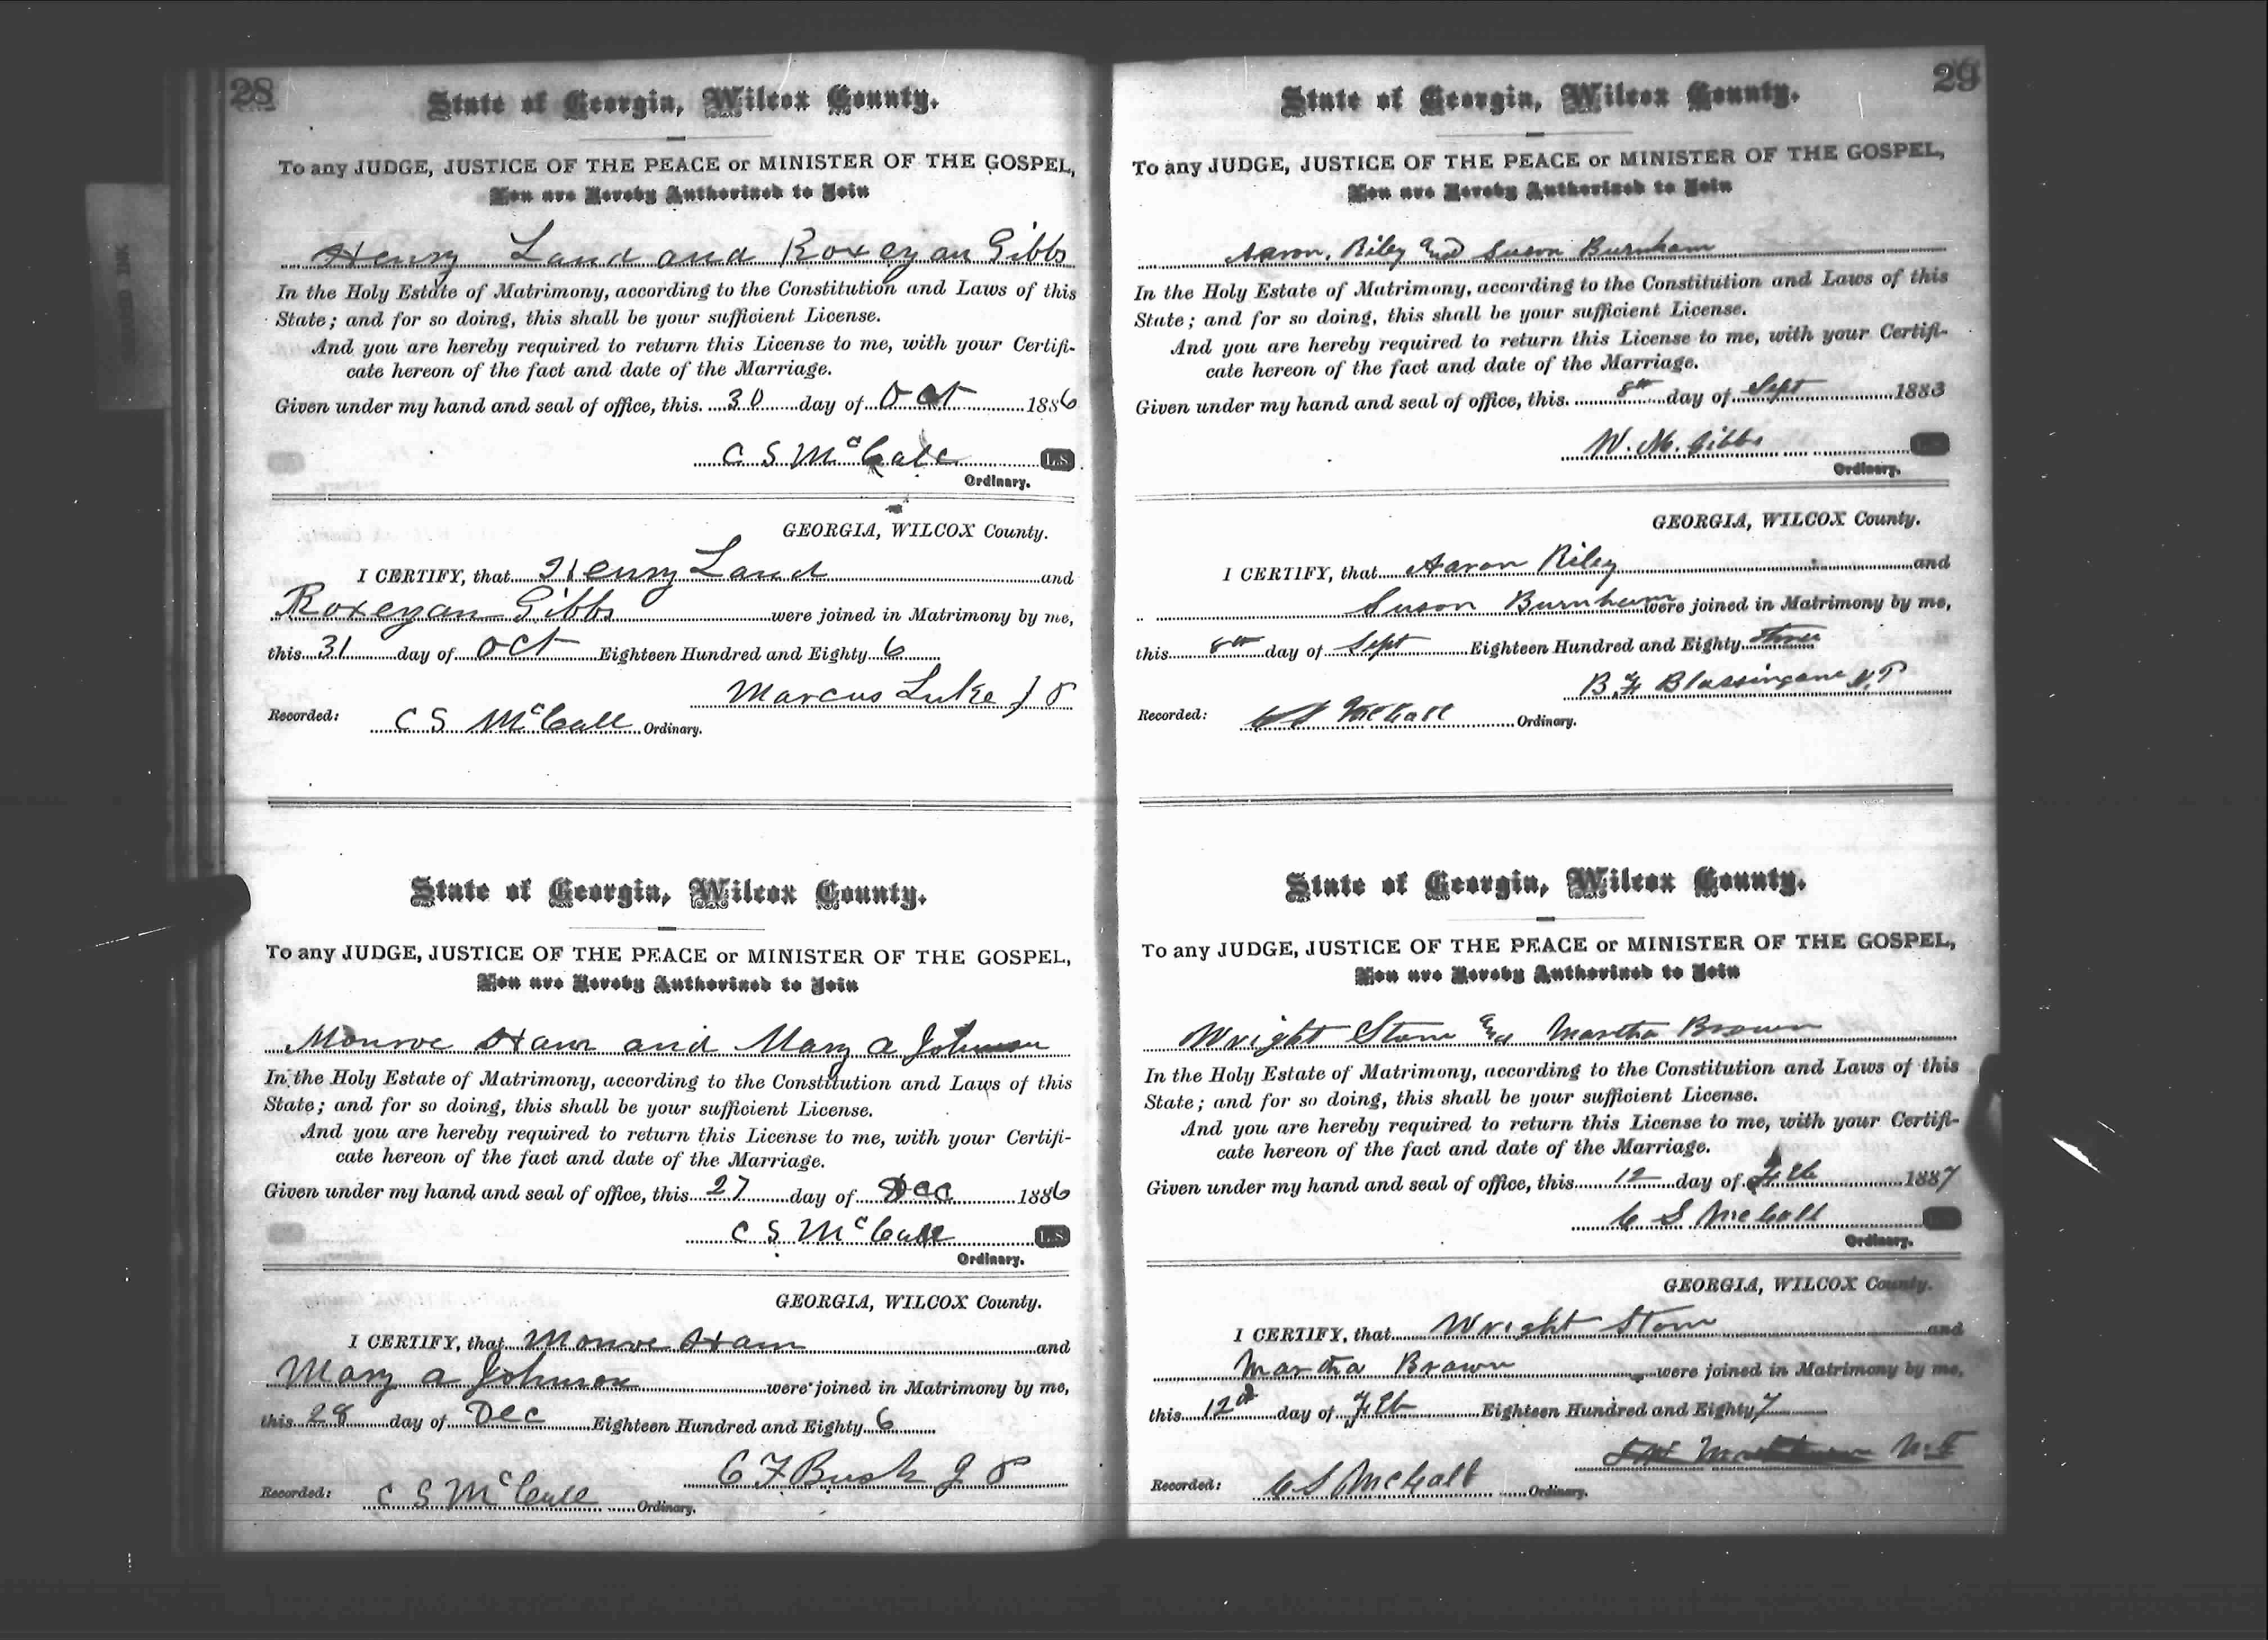 28
State of Georgia, Wilcox County.
To any JUDGE, JUSTICE OF THE PEACE or MINISTER OF THE GOSPEL,
You are Hereby Authorized to Join
Henry Land and Roxeyan Gibbs
In the Holy Estate of Matrimony, according to the Constitution and Laws of this
State; and for so doing, this shall be your sufficient License.
And you are hereby required to return this License to me, with your Certifi-
cate hereon of the fact and date of the Marriage.
Given under my hand and seal of office, this 30 day of Oct 1886
C S McCall L.S.
Ordinary.
GEORGIA, WILCOX County.
I CERTIFY, that Henry Land and
Roxeyan Gibbs were joined in Matrimony by me,
this 31 day of Oct Eighteen Hundred and Eighty 6
Marcus Luke J P
Recorded: C S McCall Ordinary.
State of Georgia, Wilcox County.
To any JUDGE, JUSTICE OF THE PEACE or MINISTER OF THE GOSPEL,
You are Hereby Authorized to Join
Monroe Ham and Mary a Johnson
In the Holy Estate of Matrimony, according to the Constitution and Laws of this
State; and for so doing, this shall be your sufficient License.
And you are hereby required to return this License to me, with your Certifi-
cate hereon of the fact and date of the Marriage.
Given under my hand and seal of office, this 27 day of Dec 1886
C S McCall L.S.
Ordinary.
GEORGIA, WILCOX County.
I CERTIFY, that Monroe Ham and
Mary a Johnson were joined in Matrimony by me,
this 28 day of Dec Eighteen Hundred and Eighty 6
C F Bush J P
Recorded: C S McCall Ordinary.
29
State of Georgia, Wilcox County.
To any JUDGE, JUSTICE OF THE PEACE or MINISTER OF THE GOSPEL,
You are Hereby Authorized to Join
Aaron Riley and Suson Burnham
In the Holy Estate of Matrimony, according to the Constitution and Laws of this
State; and for so doing, this shall be your sufficient License.
And you are hereby required to return this License to me, with your Certifi-
cate hereon of the fact and date of the Marriage.
Given under my hand and seal of office, this 8th day of Sept 1883
W. M. Gibbs
Ordinary.
GEORGIA, WILCOX County.
I CERTIFY, that Aaron Riley and
Suson Burnham were joined in Matrimony by me,
this 8th day of Sept Eighteen Hundred and Eighty three
B. F. Blassingame N. P
Recorded: C S McCall Ordinary.
State of Georgia, Wilcox County.
To any JUDGE, JUSTICE OF THE PEACE or MINISTER OF THE GOSPEL,
You are Hereby Authorized to Join
Wright Stone and Martha Brown
In the Holy Estate of Matrimony, according to the Constitution and Laws of this
State; and for so doing, this shall be your sufficient License.
And you are hereby required to return this License to me, with your Certifi-
cate hereon of the fact and date of the Marriage.
Given under my hand and seal of office, this 12 day of Feb 1887
C S McCall
Ordinary.
GEORGIA, WILCOX County.
I CERTIFY, that Wright Stone and
Martha Brown were joined in Matrimony by me,
this 12d day of Feb Eighteen Hundred and Eighty 7
Recorded: C S McCall Ordinary.